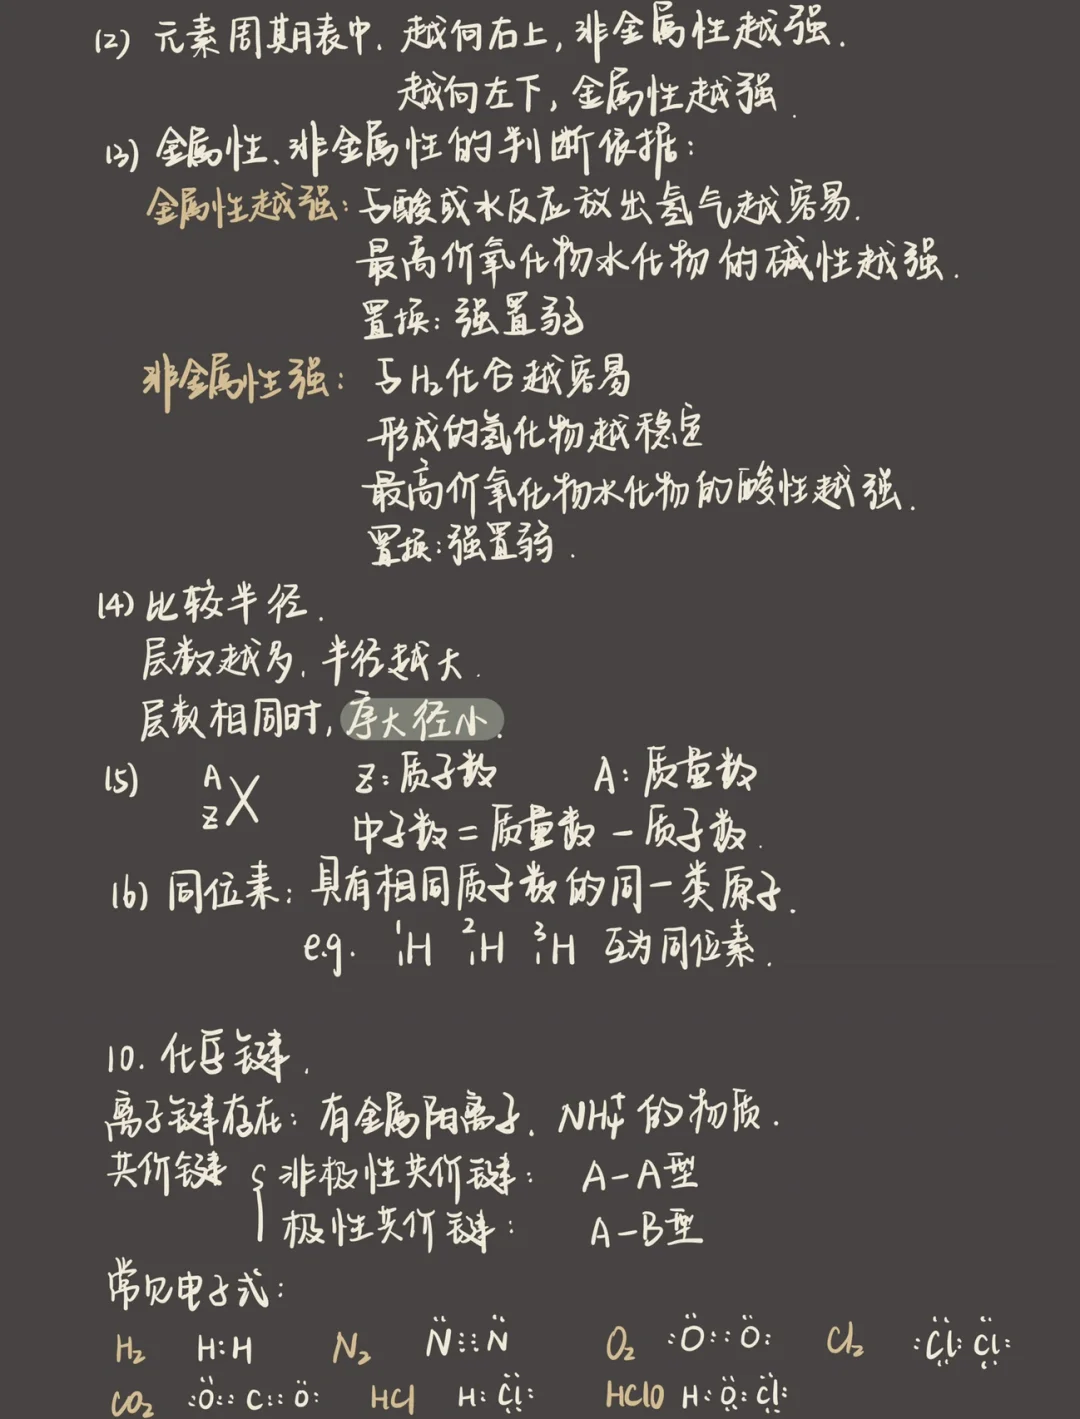 (2) 元素周期表中. 越向右上, 非金属性越强.
越向左下, 金属性越强.
(3) 金属性、非金属性的判断依据:
金属性越强: 与酸或水反应放出氢气越容易.
最高价氧化物水化物的碱性越强.
置换: 强置弱
非金属性强: 与H₂化合越容易
形成的氢化物越稳定
最高价氧化物水化物的酸性越强.
置换: 强置弱.
(4) 比较半径.
层数越多, 半径越大.
层数相同时, 序大径小.
(5) ᴬ_ZX Z: 质子数 A: 质量数
中子数 = 质量数 - 质子数.
(6) 同位素: 具有相同质子数的同一类原子.
e.g. ¹₁H ²₁H ³₁H 互为同位素.
10. 化学键.
离子键存在: 有金属阳离子. NH₄⁺ 的物质.
共价键 { 非极性共价键: A-A型
极性共价键: A-B型
常见电子式:
H₂ H:H N₂ N⋮⋮N O₂ :O::O: Cl₂ :Cl:Cl:
CO₂ :O::C::O: HCl H:Cl: HClO H:O:Cl: